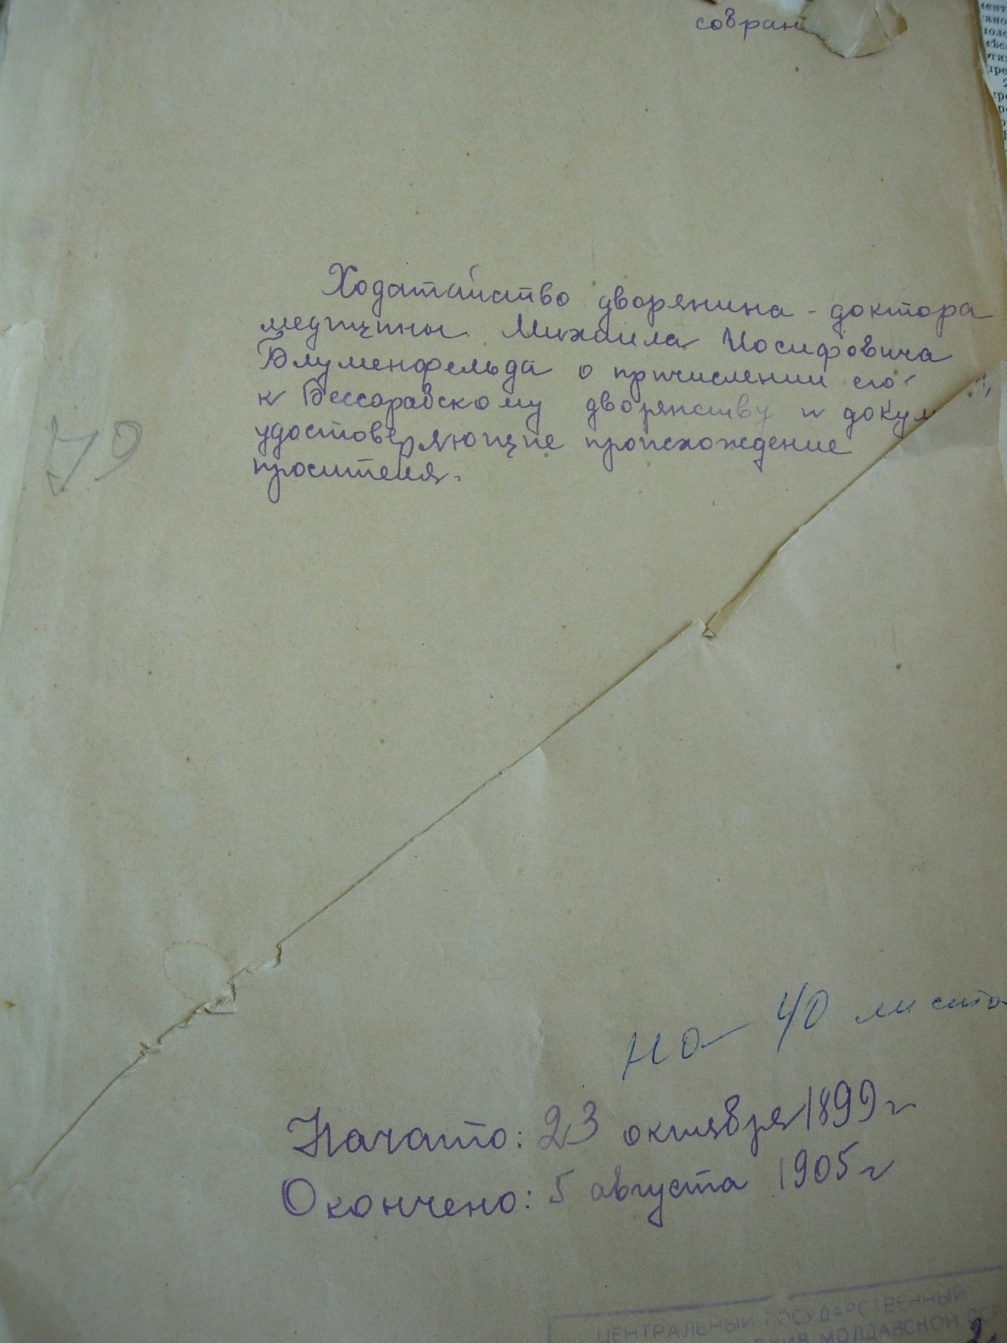 собран
Ходатайство дворянина - доктора
медицины Михаила Иосифовича
Блуменфельда о причислении его
к Бессарабскому дворянству и докум
удостоверяющие происхождение
просителя.
49
на 40 листа
Начато: 23 октября 1899 г
Окончено: 5 августа 1905 г
ЦЕНТРАЛЬНЫЙ ГОСУДАРСТВЕННЫЙ
АРХИВ МОЛДАВСКОЙ ССР